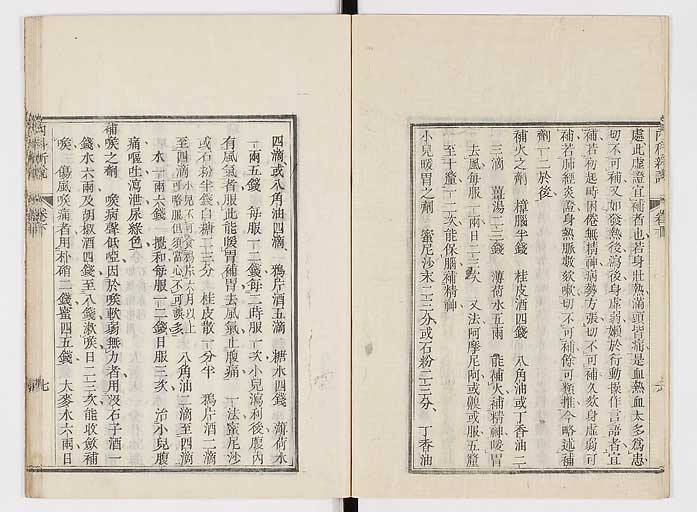 處此虛證宜補者也若身壯熱滿頭皆痛是血熱血太多爲患
切不可補又如發熱後瀉後身虛弱嬾於行動操作言語者宜
補若初起時困倦無精神病勢方張切不可補久欬身虛弱可
補若肺經炎證身熱脈數欬嗽切不可補餘可類推今略述補
劑一二於後
補火之劑 樟腦半錢 桂皮酒四錢 八角油或丁香油二
三滴 薑湯二三錢 薄荷水五兩 能補火補精神暖胃
去風每服一兩日二三次 又法阿摩尼阿或 或服五釐
至十釐一二次能保腦補精神
小兒暖胃之劑 蜜尼沙末二三分或石粉二三分 丁香油
四滴或八角油四滴 鴉片酒五滴 糖水四錢 薄荷水
一兩五錢 每服一二錢每三時服一次小兒瀉利後腹內
有風氣者服此能暖胃補胃去風氣止腹痛 一法蜜尼沙
或石粉半錢白糖二三分 桂皮散一分半 鴉片酒二滴
至四滴小兒不可食鴉片六月以上可略服但須當心不可誤多 八角油三滴至四滴
水一兩六錢 攪和每服一二錢日服三次 治小兒腹
痛嘔吐瀉泄尿綠色
補㗋之劑 㗋病聲低啞因於㗋軟弱無力者用沒石子酒一
錢水六兩及胡椒酒四錢至八錢漱㗋日二三次能收斂補
㗋 傷風㗋痛者用朴硝二錢蜜四五錢 大麥水六兩日
內科新說 卷下 七
內科新說 卷下 六